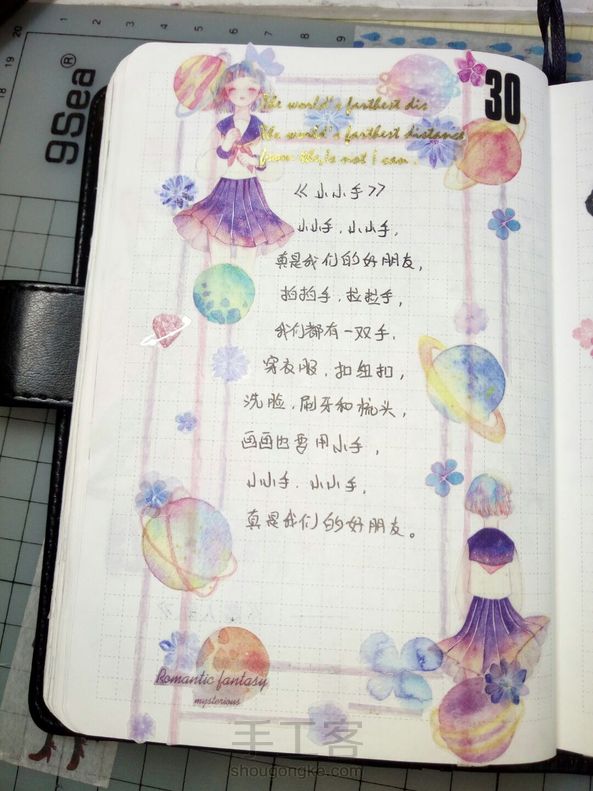 9Sea®
20
19
30
The world's farthest dis
The world's farthest distance
from this not I can.
《小小手》
小小手，小小手，
真是我们的好朋友，
拍拍手，拉拉手，
我们都有一双手，
穿衣服，扣纽扣，
洗脸，刷牙和梳头，
画画也要用小手，
小小手，小小手，
真是我们的好朋友。
Romantic fantasy
mysterious
手工客
shougongke.com